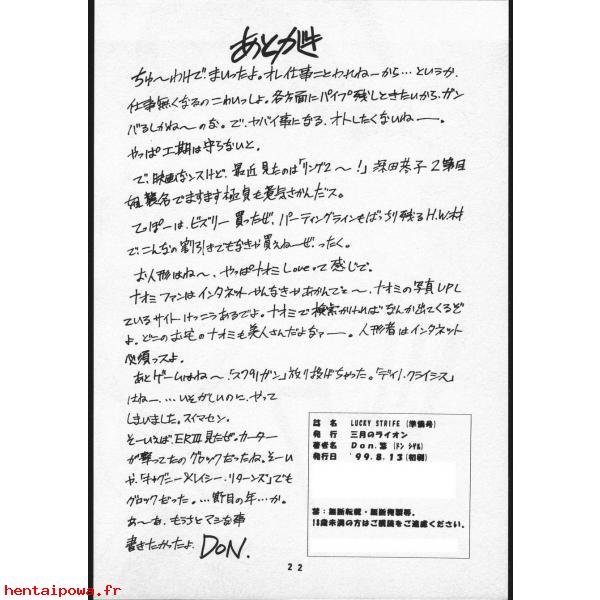 あとがき
ちゅ〜わけで、まいったよ。オレ仕事ことわれねーから…というか、
仕事無くなるのこわいっしょ。各方面にパイプ残しときたいから、ガン
バるしかね〜のな。で、ヤバイ事になる、オトしたくないねー。
やっぱ工期は守らないと。
で、映画なンスけど、最近見たのは「リング2〜!」深田恭子2
姐襲名でますます極貞も意気さかんだス。
てっぽーは、ビズリー買ったぜ、パーティングラインもばっちり残るH.W材
で、こんなの割引きでもなきゃ買えねーぜ、ったく。
お人形はね〜、やっぱナオミLoveって感じで。
ナオミファンはインタネットやんなきゃあかんでェ〜、ナオミの写真UPし
ているサイトけっこうあるでよ。ナオミで検索かければなんか出てくるぞ
よ。どこのお宅のナオミも美人さんだよなァー。人形者はインタネット
必須っスよ。
あとゲームはね〜「スクリガン」放り投げちゃった。「ディノ・クライシス」
はねー、…いそがしいのに、やって
しまいました。スイマセン。
そーいえば、ERIII見たぜ。カーター
が奪ってたのグロックだったね。そーい
や、「キャグニー&レイシー・リターンズ」でも
グロックだった。…節目の年…か。
あ〜あ、もうちとマシな事
書きたかったよ。DON.
誌 名 LUCKY STRIFE (準備号)
発 行 三月のライオン
著者名 Don.繁 (ドン シゲル)
発行日 '99.8.13(初刷)
禁:無断転載・無断複製等。
18歳未満の方はご購読をご遠慮ください。
22
hentaipowa.fr
hentaipowa.fr